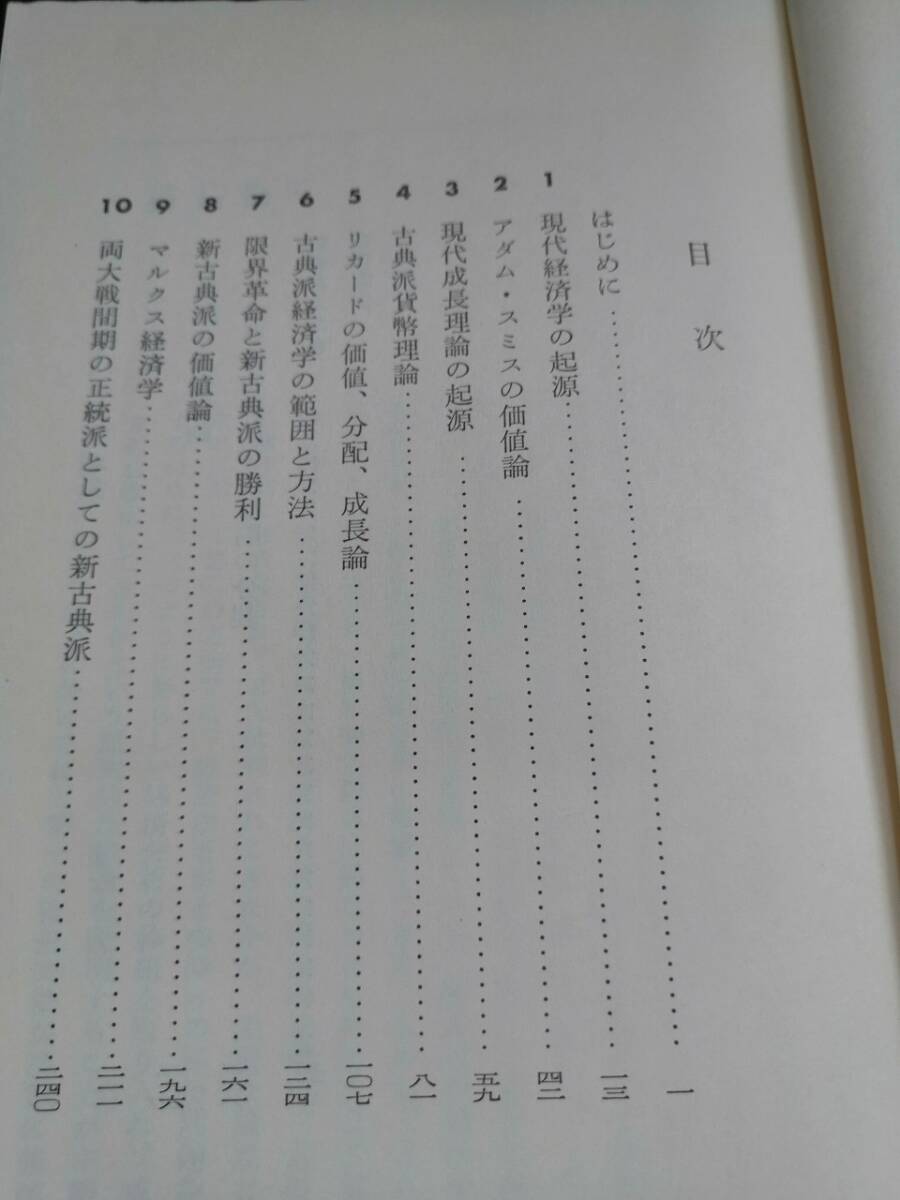 目次
はじめに……………………一
1 現代経済学の起源……………………一三
2 アダム・スミスの価値論……………………四二
3 現代成長理論の起源……………………五九
4 古典派貨幣理論……………………八一
5 リカードの価値、分配、成長論……………………一〇七
6 古典派経済学の範囲と方法……………………一二四
7 限界革命と新古典派の勝利……………………一六一
8 新古典派の価値論……………………一九六
9 マルクス経済学……………………二一一
10 両大戦間期の正統派としての新古典派……………………二四〇